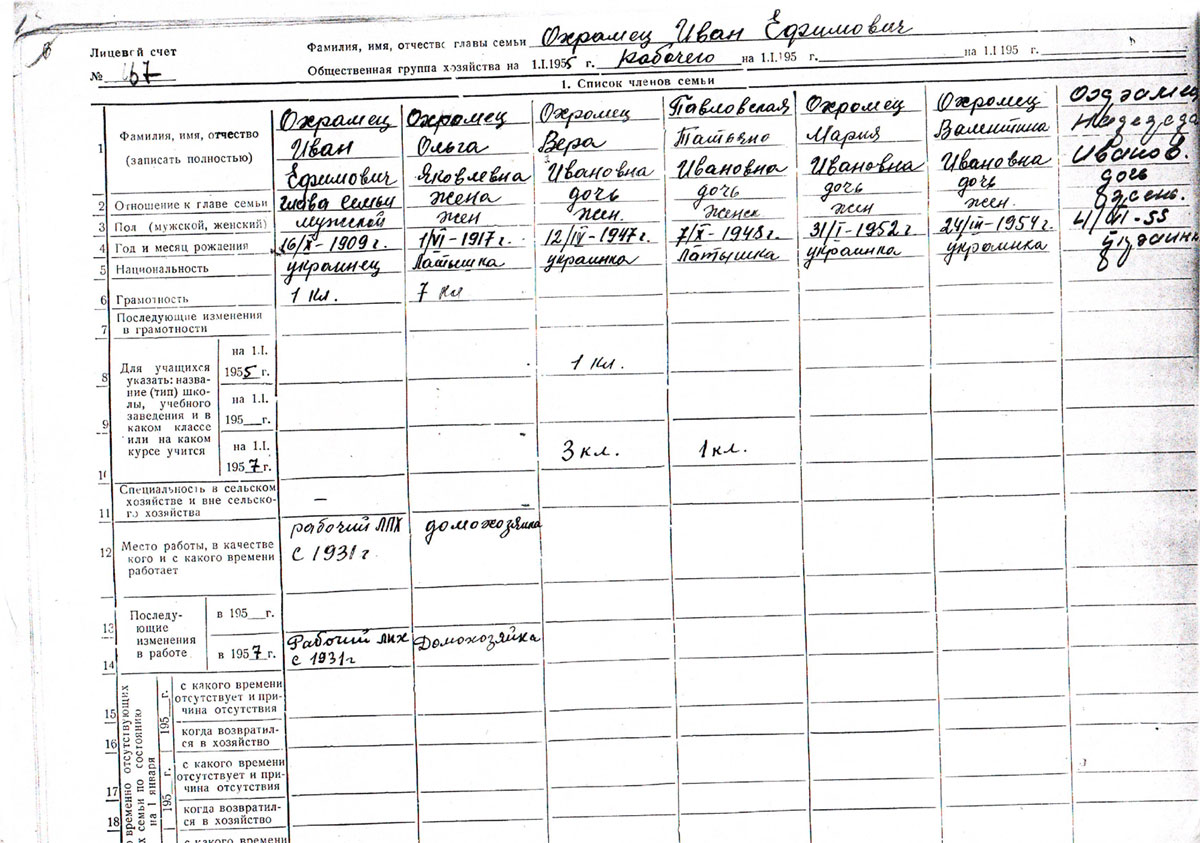 Лицевой счет
№ 67
Фамилия, имя, отчество главы семьи Охрамец Иван Ефимович
Общественная группа хозяйства на 1.I.1955 г. Рабочего на 1.I.195 г. на 1.I 195 г.
1. Список членов семьи
1 Фамилия, имя, отчество (записать полностью)
Охрамец Иван Ефимович
Охрамец Ольга Яковлевна
Охромец Вера Ивановна
Павловская Татьяна Ивановна
Охромец Мария Ивановна
Охромец Валентина Ивановна
Надежда Иванов.
2 Отношение к главе семьи глава семьи жена дочь дочь дочь дочь дочь
3 Пол (мужской, женский) мужской жен жен. женск. жен жен.
4 Год и месяц рождения 26/X-1909 г. 1/VI-1917 г. 12/IV-1947 г. 7/X-1948 г. 31/I-1952 г. 24/III-1954 г.
5 Национальность украинец Латышка украинка Латышка украинка украинка
6 Грамотность 1 кл. 7 кл
7 Последующие изменения в грамотности
Для учащихся указать: название (тип) школы, учебного заведения и в каком классе или на каком курсе учится
8 на 1.I. 1955 г. 1 кл.
9 на 1.I. 195 г.
10 на 1.I. 1957 г. 3 кл. 1 кл.
11 Специальность в сельском хозяйстве и вне сельского хозяйства —
12 Место работы, в качестве кого и с какого времени работает рабочий ЛПХ с 1931 г. домохозяйка
Последующие изменения в работе
13 в 195 г.
14 в 1957 г. Рабочий лпх с 1931г Домохозяйка
временно отсутствующих
семьи по состоянию
на 1 января
195 г.
15 с какого времени отсутствует и причина отсутствия
16 когда возвратился в хозяйство
195 г.
17 с какого времени отсутствует и причина отсутствия
18 когда возвратился в хозяйство
с какого времени